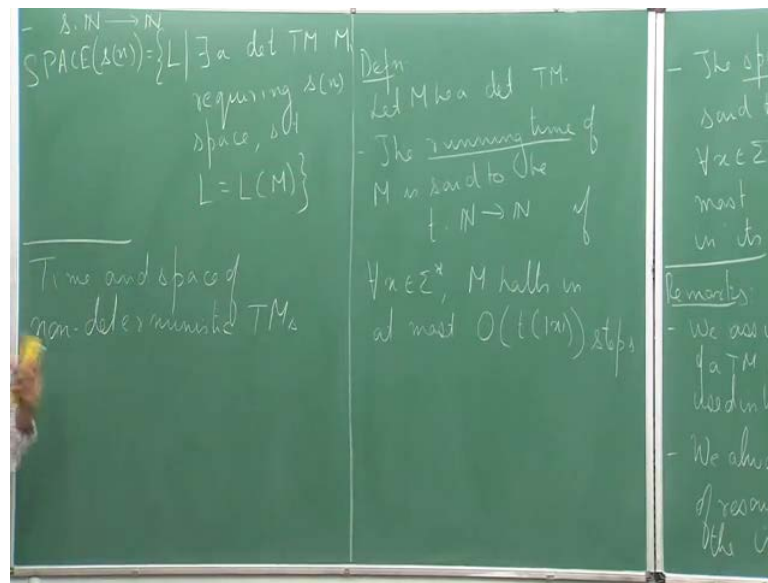 - s. ℕ → ℕ
SPACE(s(n)) = {L | ∃ a det TM M,
requiring s(n)
space, s.t
L = L(M)}
Time and space of
non-deterministic TMs
Defn
Let M be a det TM.
- The running time of
M is said to be
t. ℕ → ℕ if
∀x ∈ Σ*, M halts in
at most O(t(|x|)) steps
- The sp
said t
∀x ∈ Σ
most
in its
Remarks:
- We ass
of a TM
used in
- We alwa
of resou
the i